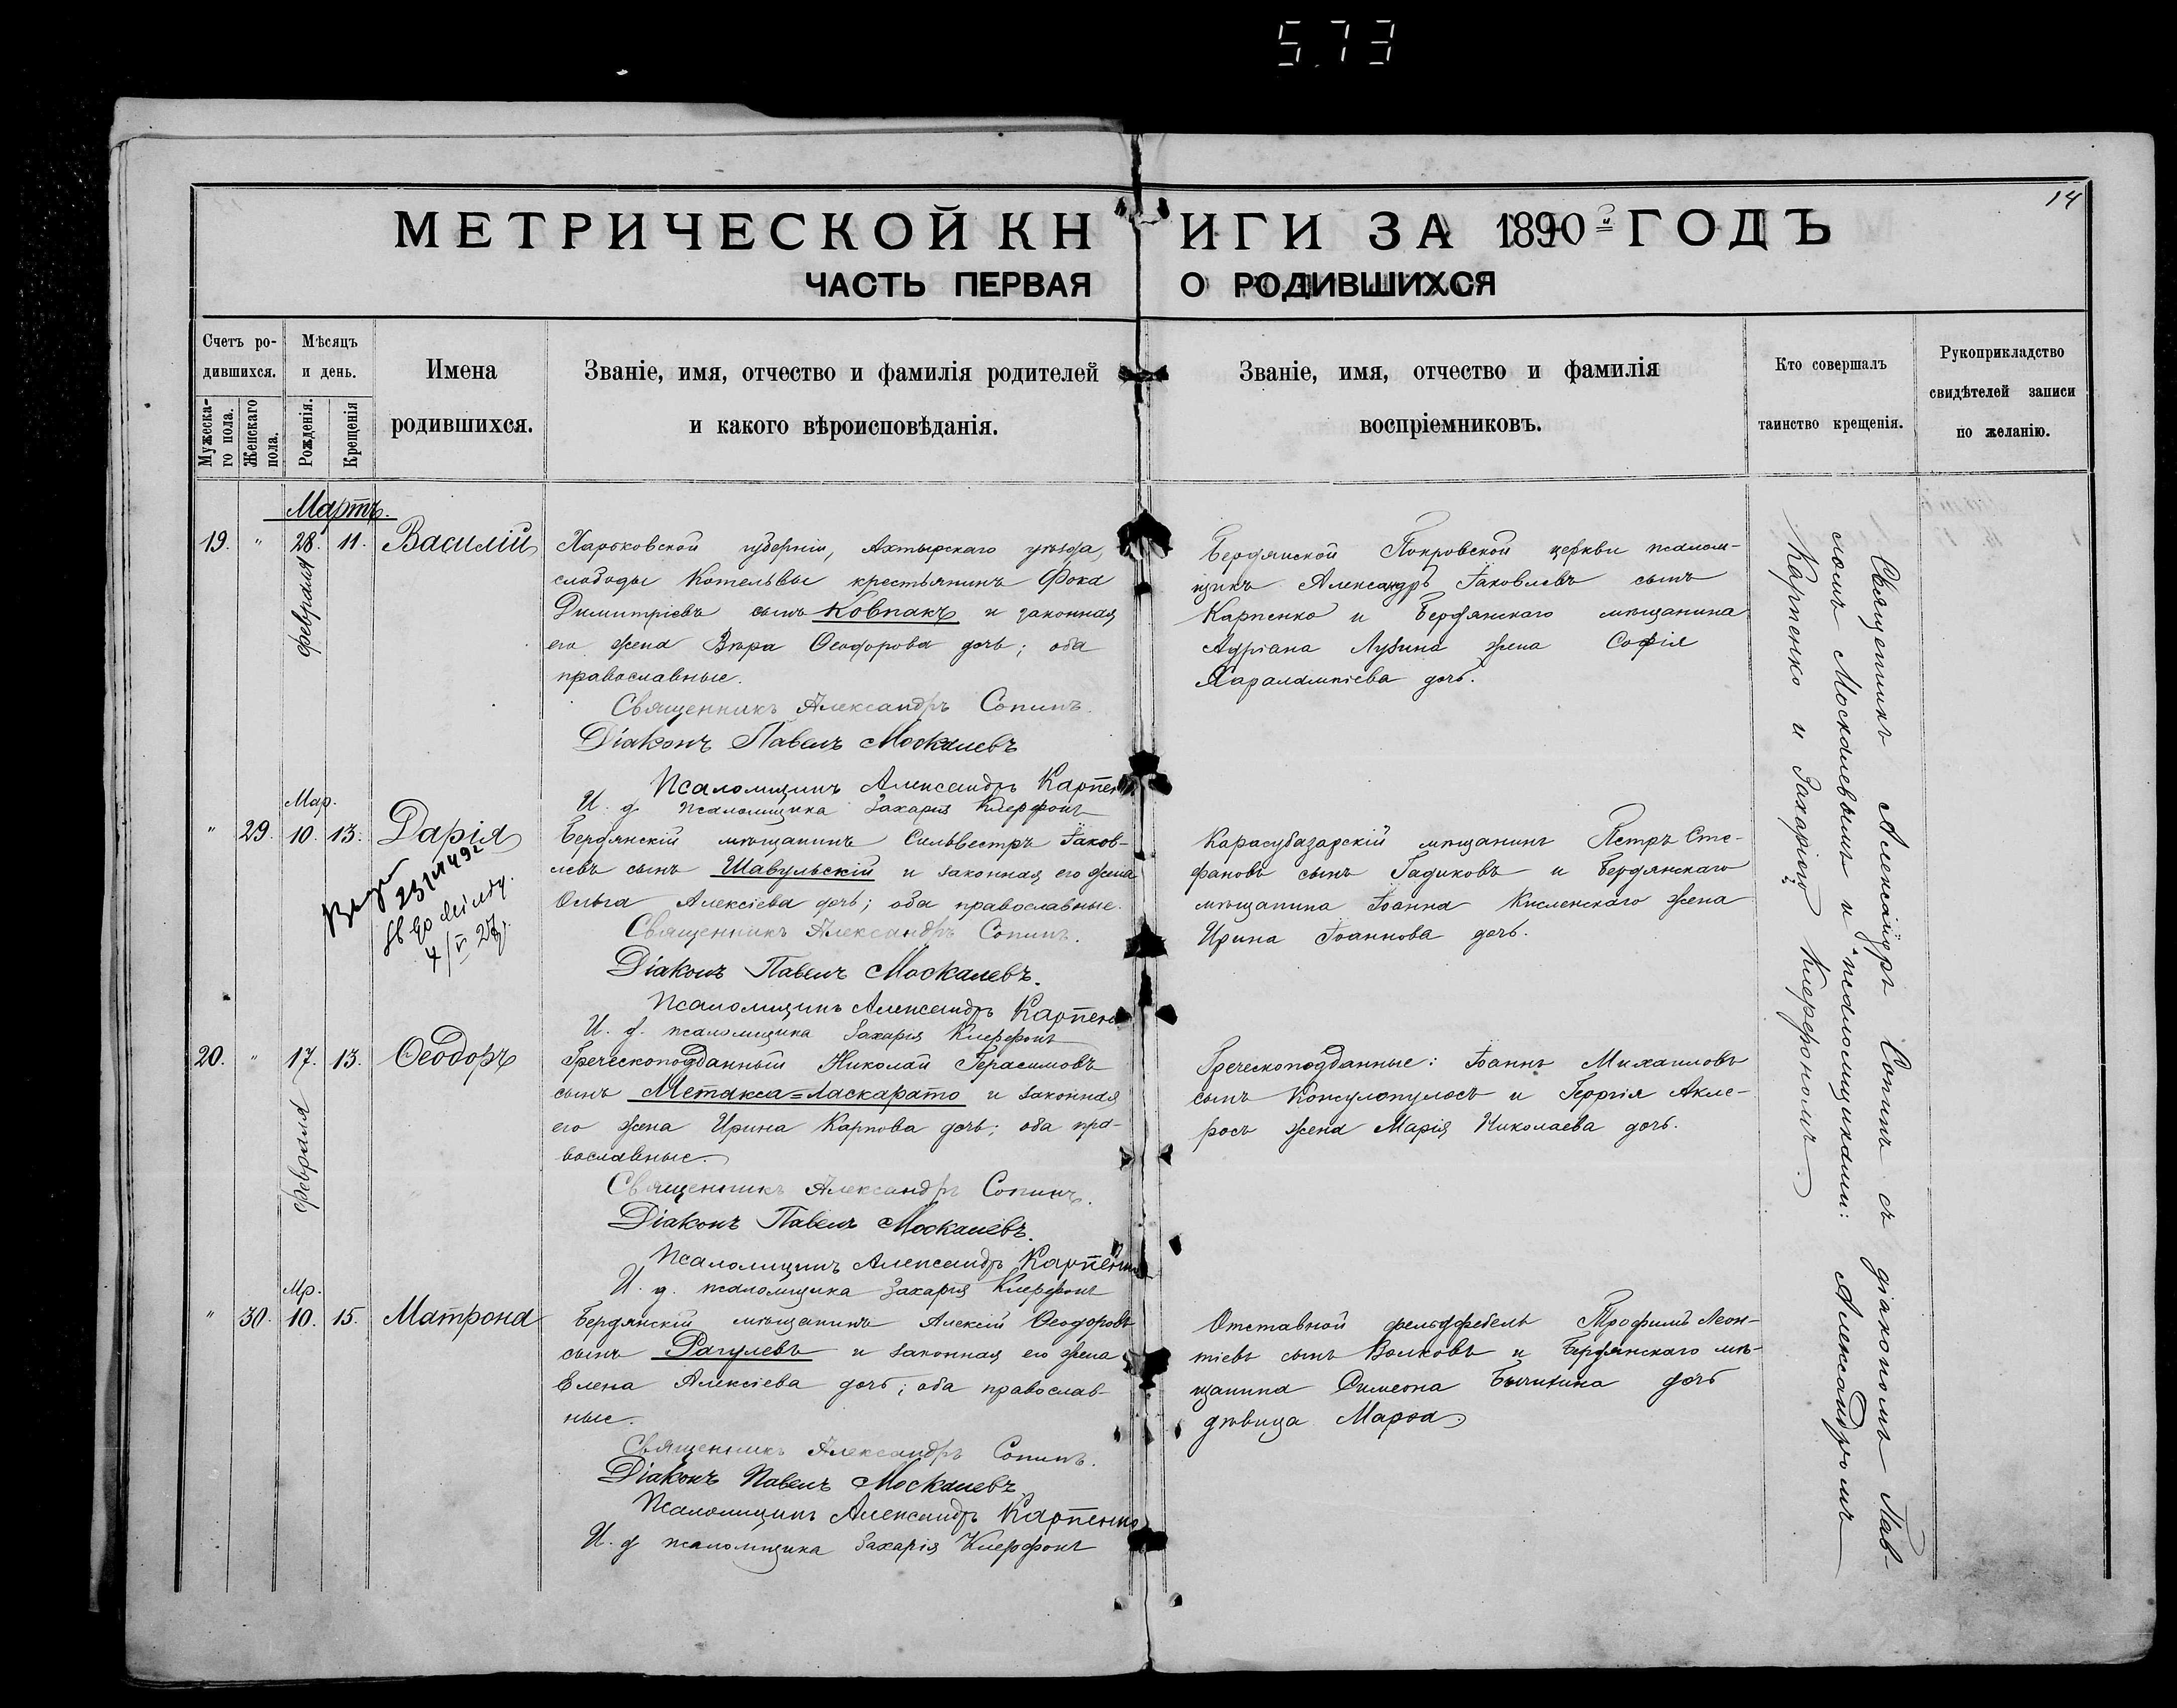 5.73
14
МЕТРИЧЕСКОЙ КНИГИ ЗА 1890й ГОДЪ
ЧАСТЬ ПЕРВАЯ О РОДИВШИХСЯ
Счетъ ро-
дившихся.
Мужеска-
го пола.
Женскаго
пола.
Мѣсяцъ
и день.
Рожденія.
Крещенія
Имена
родившихся.
Званіе, имя, отчество и фамилія родителей
и какого вѣроисповѣданія.
Званіе, имя, отчество и фамилія
воспріемниковъ.
Кто совершалъ
таинство крещенія.
Рукоприкладство
свидѣтелей записи
по желанію.
Мартъ.
19. " 28. 11. Василій
Февраля
Харьковской губерніи, Ахтырскаго уѣзда,
слободы Котельвы крестьянинъ Фока
Димитріевъ сынъ Ковпакъ и законная
его жена Вѣра Ѳеодорова дочь; оба
православные.
Священникъ Александръ Сопинъ.
Діаконъ Павелъ Москалевъ
Псаломщикъ Александръ Карпенко
И. д. псаломщика Захарія Клерфонъ
Бердянской Покровской церкви псалом-
щикъ Александръ Іаковлевъ сынъ
Карпенко и Бердянскаго мѣщанина
Адріана Лубина жена Софія
Харалампіева дочь.
Мар.
" 29. 10. 13. Дарія
Бердянскій мѣщанинъ Сильвестръ Іаков-
левъ сынъ Шавульскій и законная его жена
Ольга Алексіева дочь; оба православные.
Священникъ Александръ Сопинъ.
Діаконъ Павелъ Москалевъ.
Псаломщикъ Александръ Карпенко
И. д. псаломщика Захарія Клерфонъ
Карасубазарскій мѣщанинъ Петръ Сте-
фановъ сынъ Гадиковъ и Бердянскаго
мѣщанина Іоанна Кисленскаго жена
Ирина Іоаннова дочь.
20. " 17. 13. Ѳеодоръ
Февраля
Греческоподданный Николай Герасимовъ
сынъ Метакса=Ласкарато и законная
его жена Ирина Карпова дочь; оба пра-
вославные.
Священникъ Александръ Сопинъ.
Діаконъ Павелъ Москалевъ.
Псаломщикъ Александръ Карпенко
И. д. псаломщика Захарія Клерфонъ
Греческоподданные: Іоаннъ Михаиловъ
сынъ Консулопулосъ и Георгія Акле-
росъ жена Марія Николаева дочь.
Мр.
" 30. 10. 15. Матрона
Бердянскій мѣщанинъ Алексій Ѳеодоровъ
сынъ Рагулевъ и законная его жена
Елена Алексіева дочь; оба православ-
ные.
Священникъ Александръ Сопинъ.
Діаконъ Павелъ Москалевъ
Псаломщикъ Александръ Карпенко
И. д псаломщика Захарія Клерфонъ
Отставной фельдфебель Трофимъ Леон-
тіевъ сынъ Волковъ и Бердянскаго мѣ-
щанина Симеона Бычихина дочь
дѣвица Марѳа.
Священникъ Александръ Сопинъ съ діакономъ Пав-
ломъ Москалевымъ и псаломщиками: Александромъ
Карпенко и Захаріею Клерфономъ.